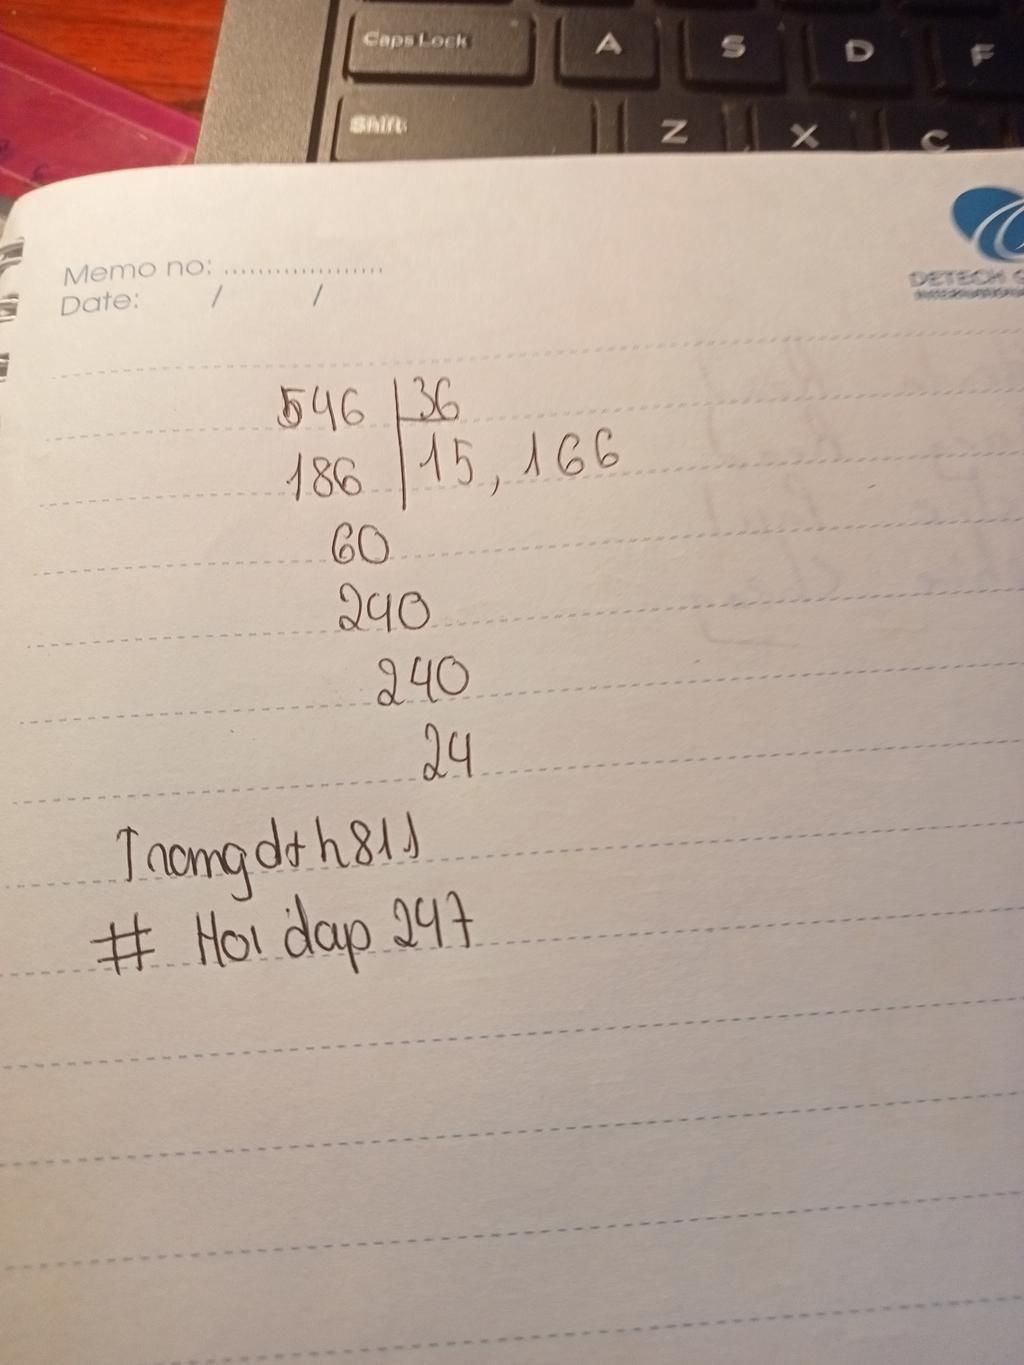 Caps Lock A S D F
Shift Z X C
Memo no: ....................
Date: / /
DETECH
546 36
186 15,166
60
240
240
24
Trangdth811
# Hoi dap 247